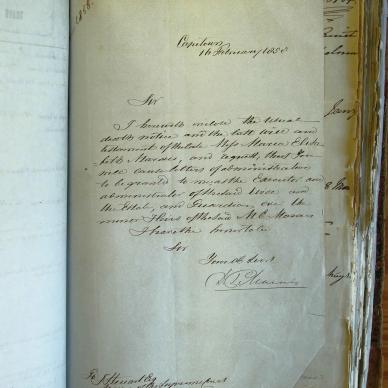 1858.
Capetown
16 February 1858
Sir
I herewith inclose the usual
death notice and the last will and
testament of the late Miss Maria Eliza-
beth and request, that you
will cause letters of administration
to be granted to me as the Executor and
administrator of the said Will and
the Estate, and Guardian over the
minor Heirs of the said M. E.
I have the honor to be
Sir
Your Ob Servt
To
of the Supreme Court